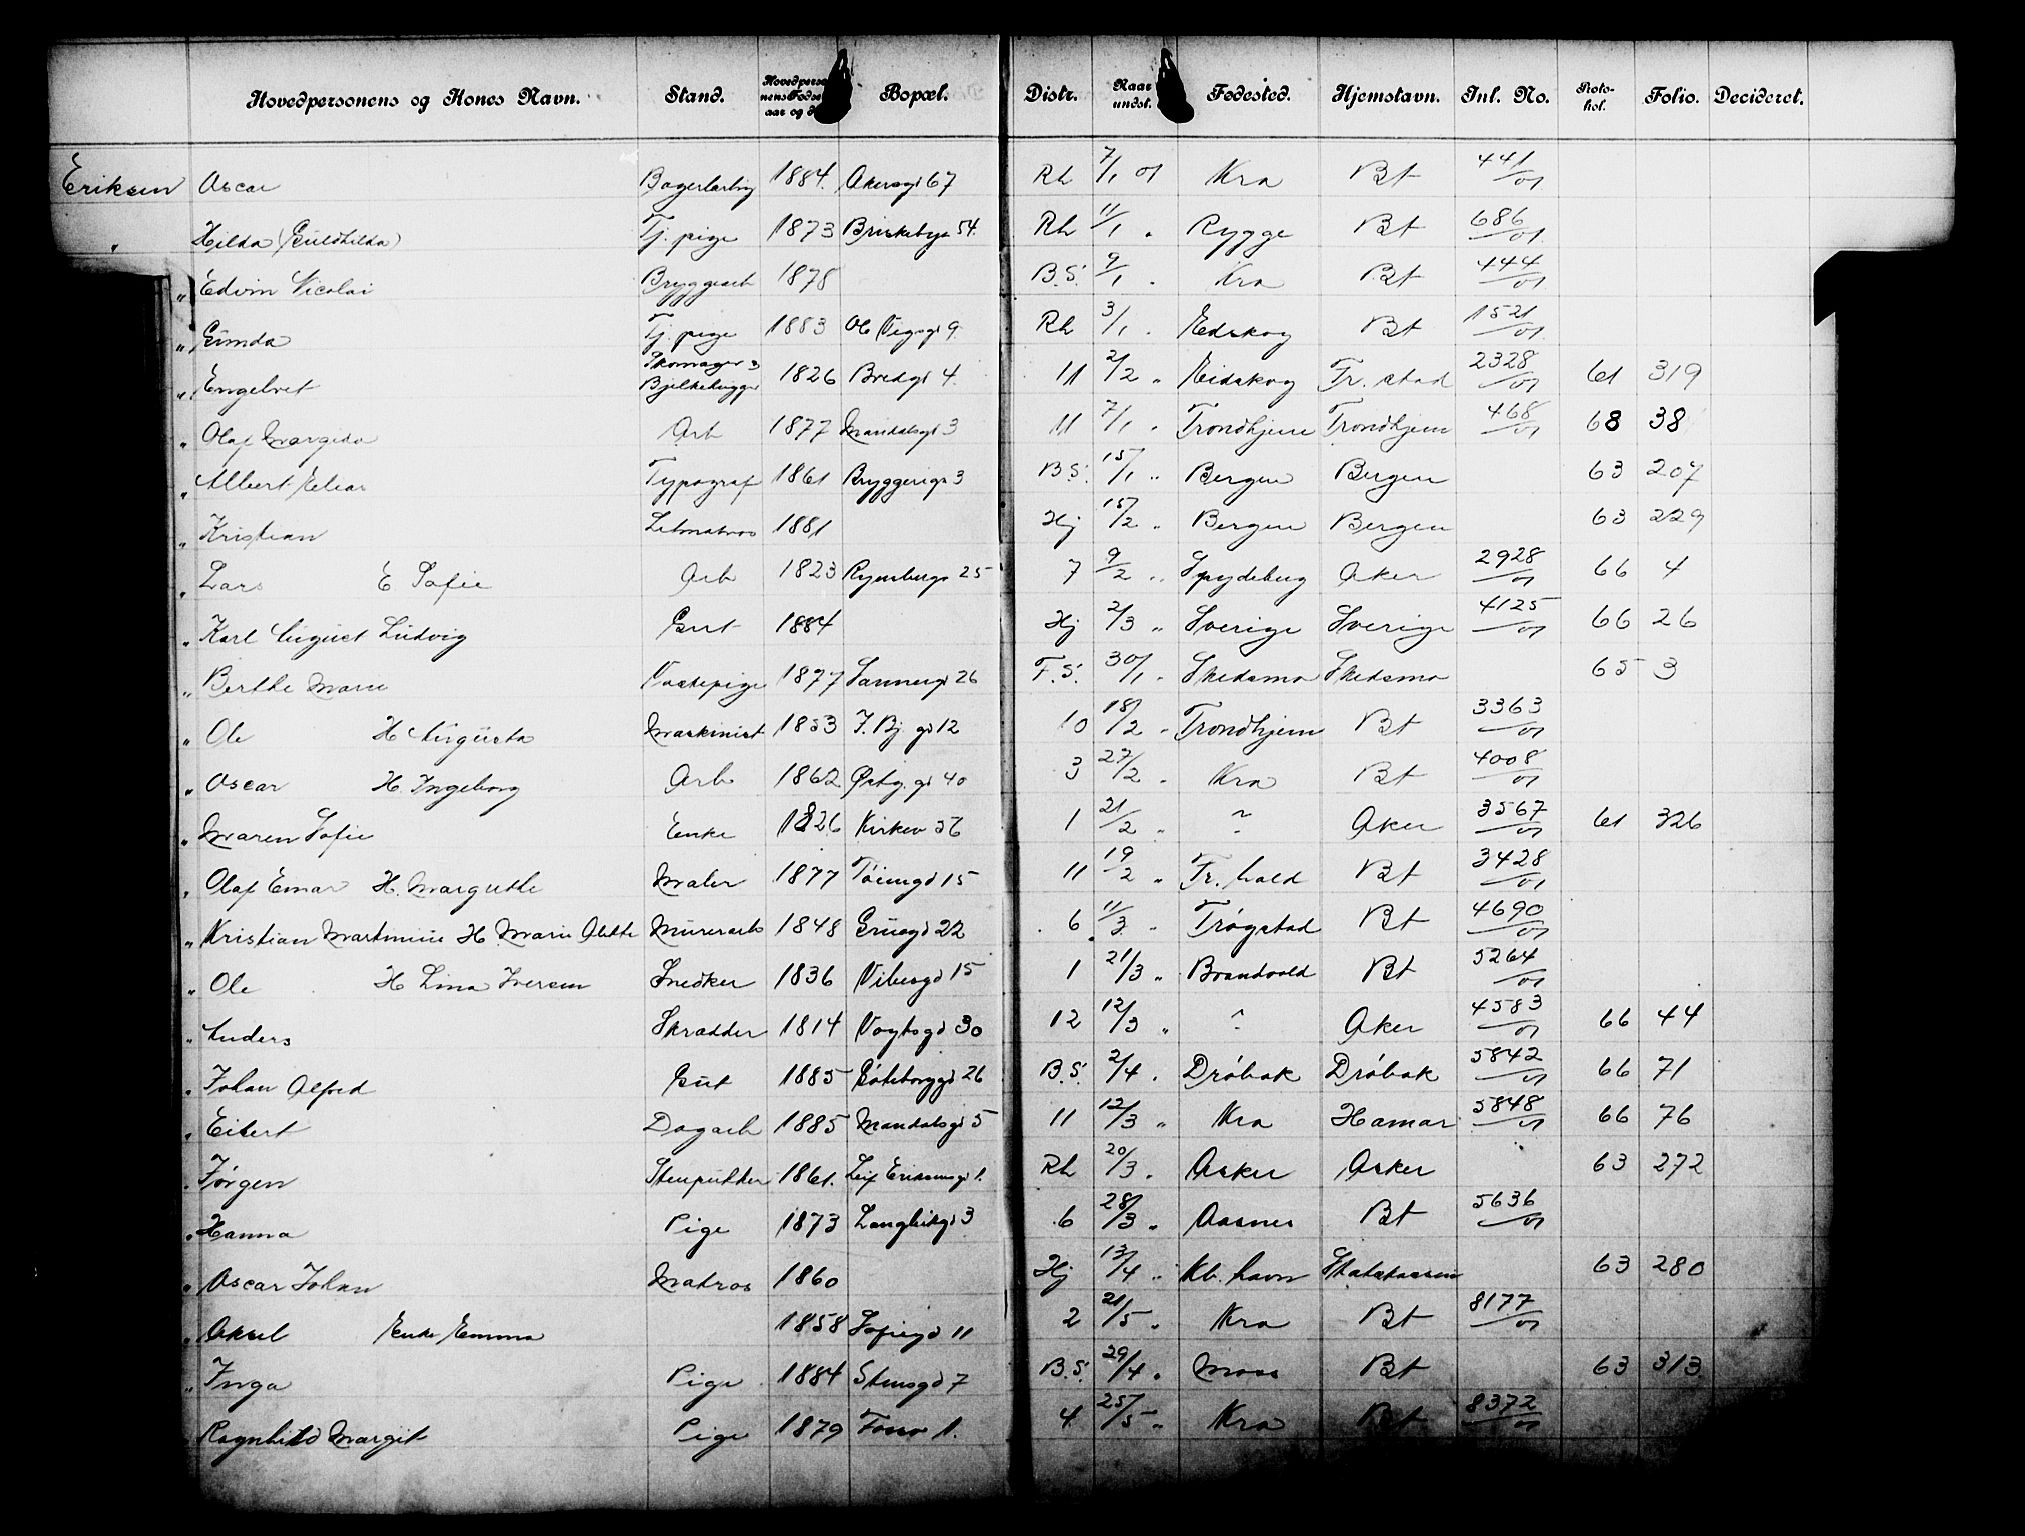 Hovedpersonens og Kones Navn. Stand. Bopæl. Distr. Naar undst. Fødested. Hjemstavn. Inl. No. Proto-kol. Folio. Decideret.
Eriksen Oscar 1884. Akersgd 67 Rh 7/1 01 Kra Bt 441/01
" Hilda (Guldhilda) Tj. pige 1873 Briskebyv 54. Rh 11/1 " Rygge Bt 686/01
" Edvin Nicolai Bryggearb 1878 B.S. 9/1 " Kra Bt 444/01
" Gunda Tj. pige 1883 9 Rh 3/1 " Edskog Bt 1521/01
" Engelbret Skomager & Bjelkehugger 1826 Bredgd 4. 11 2/2 " Eidskog Fr. stad 2328/01 61 319
" Olaf Margido Arb 1877 Mandalsgd 3 11 7/1 " Trondhjem Trondhjem 468/01 68 38
" Albert Elias Typograf 1861 Bryggerigd 3 B.S. 15/1 " Bergen Bergen 63 207
" Kristian Letmatros 1881 Hj 15/2 " Bergen Bergen 63 229
" Lars E Sofie Arb 1823 Ryenbergv 25 7 9/2 " Spydeberg Aker 2928/01 66 4
" Karl August Ludvig Gut 1884 Hj 2/3 " Sverige Sverige 4125/01 66 26
" Berthe Marie Vaskepige 1877 Sannergd 26 F.S. 30/1 " Skedsmo Skedsmo 65 3
" Ole H Augusta Maskinist 1853 J. Bj. gd 12 10 18/2 " Trondhjem Bt 3363/01
" Oscar H. Ingeborg Arb 1862 Østby. gd 40 3 27/2 " Kra Bt 4008/01
" Maren Sofie Enke 1826 Kirkev 56 1 21/2 " ? Aker 3567/01 61 326
" Olaf Einar H. Margrethe Maler 1877 Tøiengd 15 11 19/2 " Fr. hald Bt 3428/01
" Kristian Martinius H Marie Olette Murerarb 1848 Gruegd 22 6 11/3 " Trøgstad Bt 4690/01
" Ole H Lina Iversen Snedker 1836 Vibesgd 15 1 21/3 " Brandvold Bt 5264/01
" Anders Skrædder 1814 Vogtsgd 30 12 12/3 " ? Aker 4583/01 66 44
" Johan Alfred Gut 1885 Gøteborggd 26 B.S. 2/4 " Drøbak Drøbak 5842/01 66 71
" Eilert Dagarb 1885 Mandalsgd 5 11 12/3 " Kra Hamar 5848/01 66 76
" Jørgen Stenpukker 1861. Leif Eriksensgd 1. Rh 20/3 " Asker Asker 63 272
" Hanna Pige 1873 3 6 28/3 " Aasnes Bt 5636/01
" Oscar Johan Matros 1860 Hj 13/4 " Kb. havn Statskassen 63 280
" Aksel Enke Emma 1858 Sofiegd 11 2 21/5 " Kra Bt 8177/01
" Inga Pige 1884 Stensgd 7 B.S. 29/4 " Moss Bt 63 313
" Ragnhild Margit Pige 1879 Fossv 1. 4 25/5 " Kra Bt 8372/01